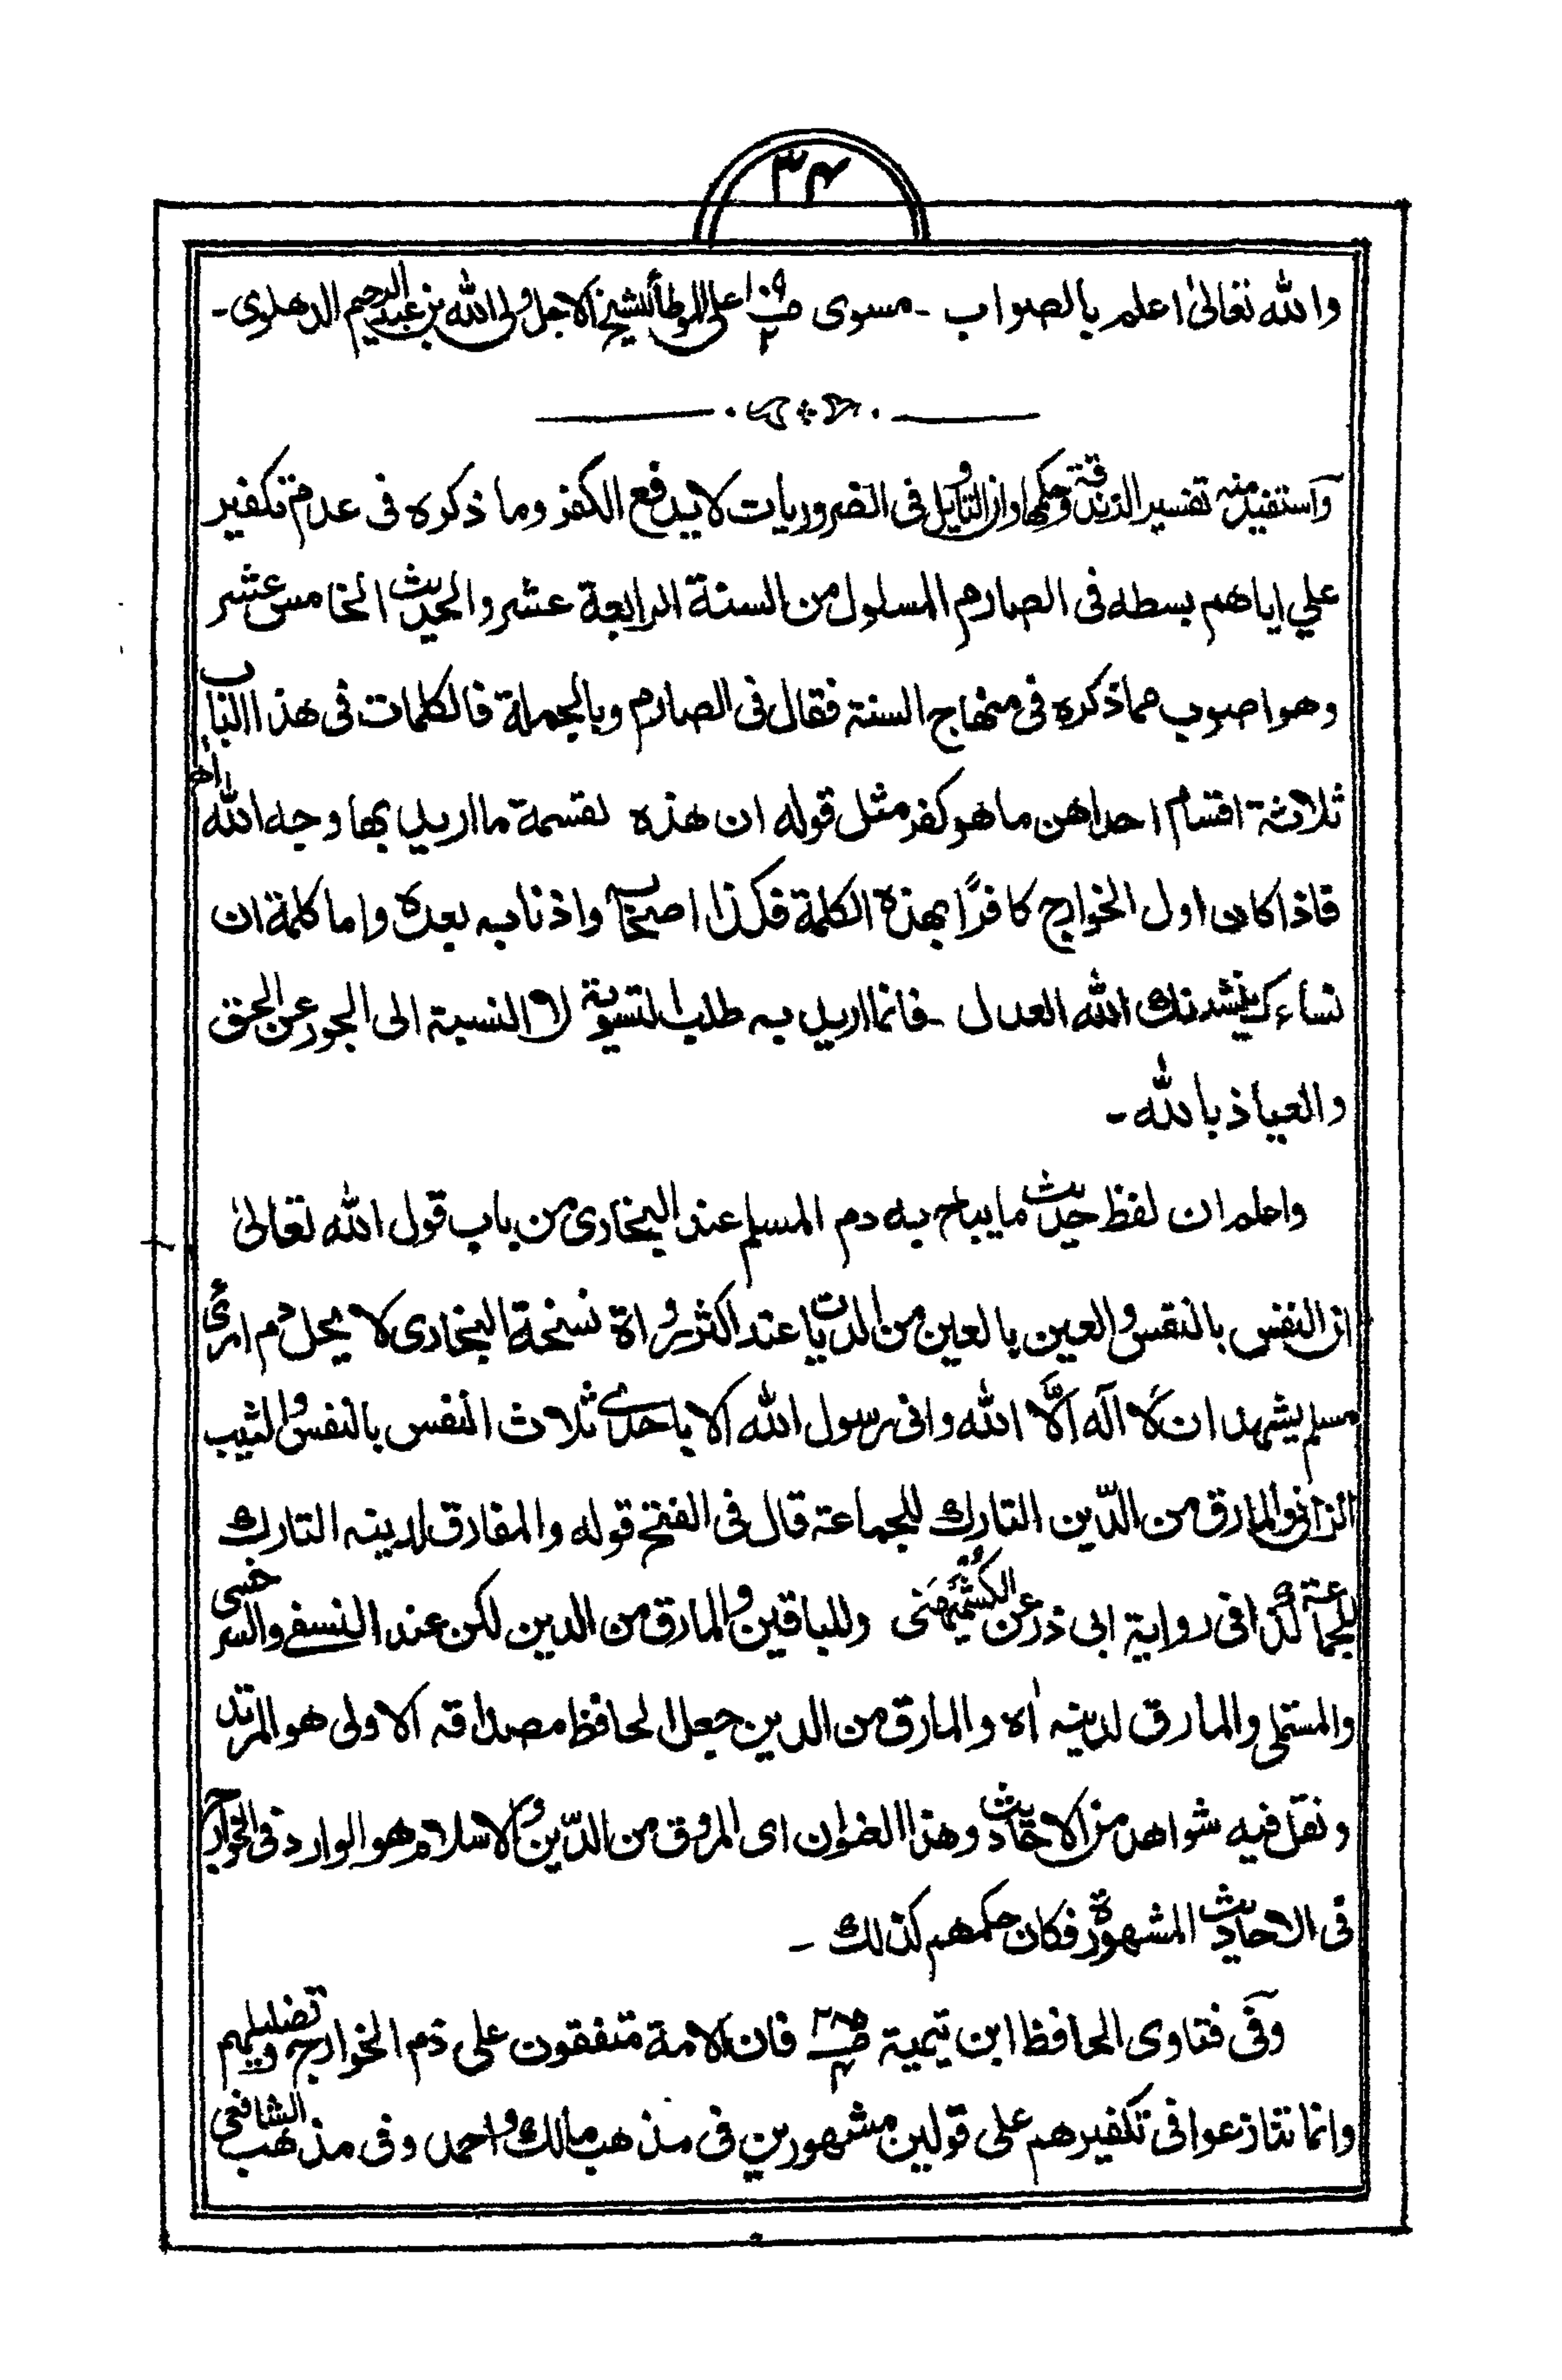 ٣٤
والله تعالىٰ اعلم بالصواب ـ مسوى ص١٠٩ ٢ على الموطأ للشيخ الاجل ولى الله بن عبد الرحيم الدهلوى ـ
وآستفيد منه تفسير الزندقة وحكمها وان التأويل فى الضروريات لا يدفع الكفر وما ذكره فى عدم تكفير
علي اياهم بسطه فى الصارم المسلول من السنة الرابعة عشر والحديث الخامس عشر
وهو اصوب مما ذكره فى منهاج السنة فقال فى الصارم وبالجملة فالكلمات فى هذا الباب
ثلاثة اقسام احداهن ما هو كفر مثل قوله ان هذه لقسمة ما اريد بها وجه الله اھ
فاذا كان اول الخوارج كافرًا بهذه الكلمة فكذا اصحابه واذنابه بعده واما كلمة ان
نساءك ينشدنك الله العدل ـ فانما اريد به طلب التسوية لا النسبة الى الجور عن الحق
والعياذ بالله ـ
واعلم ان لفظ حديث ما يباح به دم المسلم عند البخارى من باب قول الله تعالىٰ
ان النفس بالنفس والعين بالعين من الديات عند اكثر رواة نسخة البخارى لا يحل دم امرئ
مسلم يشهد ان لا اله الا الله وانى رسول الله الا باحدى ثلاث النفس بالنفس والثيب
الزانى والمارق من الدّين التارك للجماعة قال فى الفتح قوله والمفارق لدينه التارك
للجماعة كذا فى رواية ابى ذر عن الكشميهنى وللباقين والمارق من الدين لكن عند النسفے والسرخسى
والمستملى والمارق لدينه اه والمارق من الدين جعل الحافظ مصداقه الاولى هو المرتد
ونقل فيه شواهد من الاحاديث وهذا العنوان اى المروق من الدّين والاسلام هو الوارد فى الخوارج
فى الاحاديث المشهورة فكان حكمهم كذلك ـ
وفى فتاوى الحافظ ابن تيمية ص٢٨٥ ٤ فان الامة متفقون على ذم الخوارج وتضليلهم
وانما تنازعوا فى تكفيرهم على قولين مشهورين فى مذهب مالك واحمد وفى مذهب الشافعى